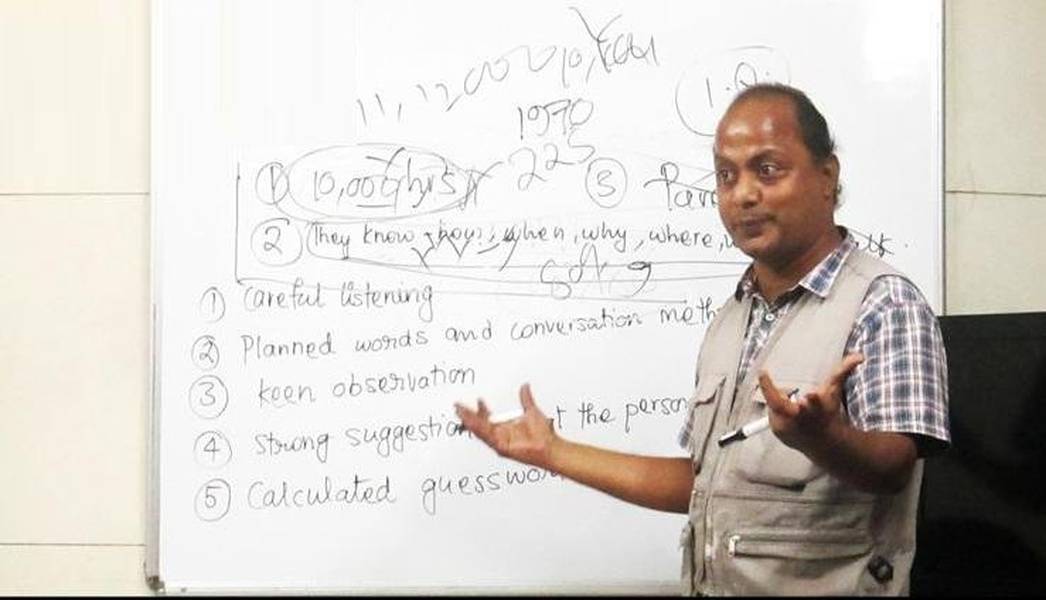 11, 12000 10, Year
1970
I.Q.
① 10,000 hrs 225 ③
② They know how, when, why, where,
① Careful listening
② Planned words and conversation meth
③ keen observation
④ Strong suggestion t the person
⑤ Calculated guesswor